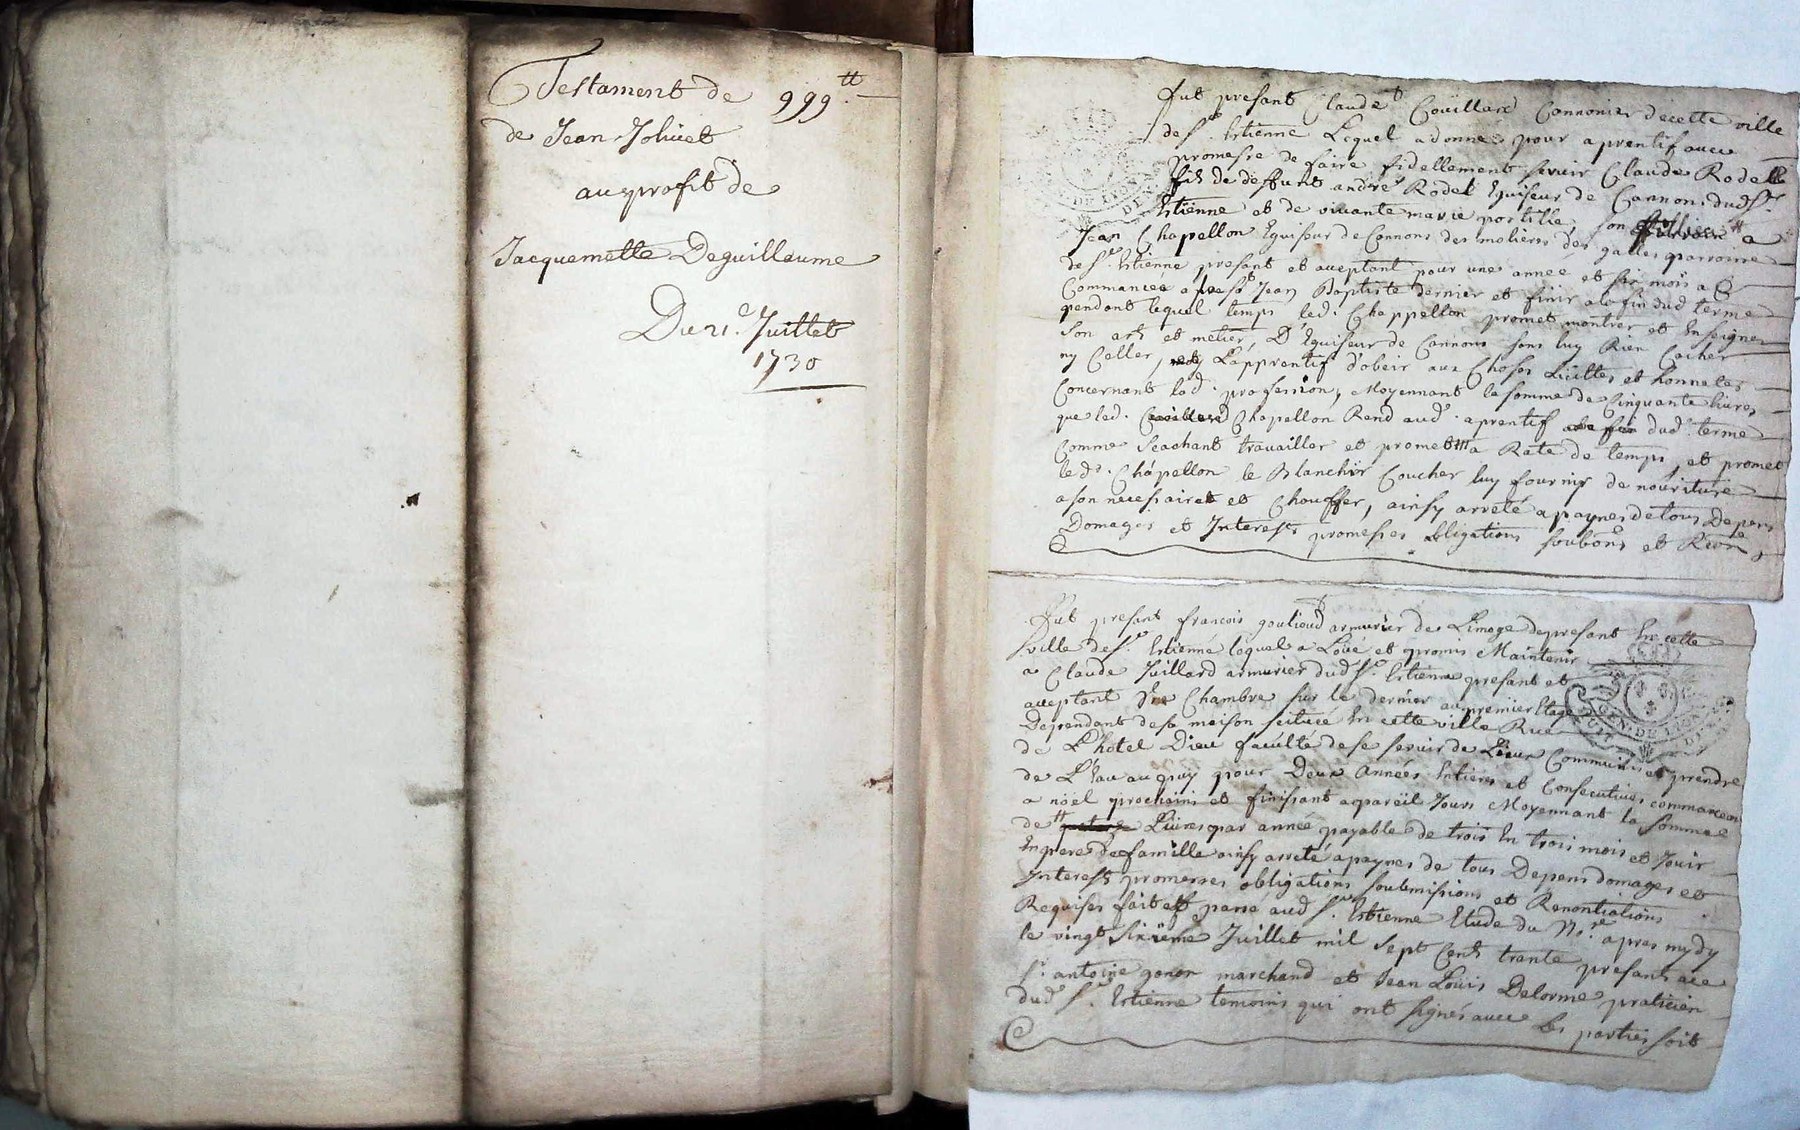 Testament de 999.tt
de Jean Jolivet
au profit de
Jacquemette Deguillaume
Du 21.e Juillet
1730
fut presant Claude Coüillard Connonier decette ville
de St. Estienne Lequel a donne pour aprentif avec
promesse de faire fidellement servir Claude Rodet
fils de deffunt andre Rodet Equiseur de Cannons dud St.
Estienne et de vivante marie portille, son a
Jean Chapellon Equiseur de Connons des molieres des parroisse
de St. Estienne presant et aceptant pour une annee et six mois a
Commancee a la St Jean Baptiste dernier et finir a la fin dud terme
pendant lequel temps led. Chappellon promet montrer et Enseigner
Son art et metier, D'Equiseur de Cannons sans luy Rien Cacher
ny Celler, L'apprentif d'obeir aux Choses Licittes et honnetes
Concernant lad. profession, Moyennant la somme de Cinquante livres
que led. Chapellon Rend aud. aprentif dud. terme
Comme Scachant travailler et promet a Rate de temps, et promet
led. Chapellon le Blanchir Coucher luy fournir de nouriture
a son necessaire et Chouffer, ainsy arreté a paynes de tous Depens
Domages et Interests promesses obligations soubons et Reons
fut presant francois goulioud armurier de Limoge depresant En cette
ville de St. Estienne lequel a Loüé et promis Maintenir
a Claude Juillard armurier dud St. Estienne presant et
aceptant Une Chambre sur le dernier au premier Etage
Dependant de sa maison scituée En cette ville Rue
de L'hotel Dieu faculté de se servir de Lieux Communs et prendre
de L'Eau au puy pour Deux Années Entieres et Consecutives commancean
a nöel prochain et finissant a pareil Jours Moyennant la Somme
de Livres par année payable de trois En trois mois et Jouir
En pere de famille ainsy arreté a paynes de tous Depens domages et
Interests promesses obligations soubmissions et Renontiations
Requises fait et passé aud St. Estienne Etude du No.re apres mydy
le vingt Sixieme Juillet mil sept Cent trente presants
Sr. antoine gonon marchand et Jean Louis Delorme praticien
dud St. Estienne temoins qui ont signés avec Les parties soit